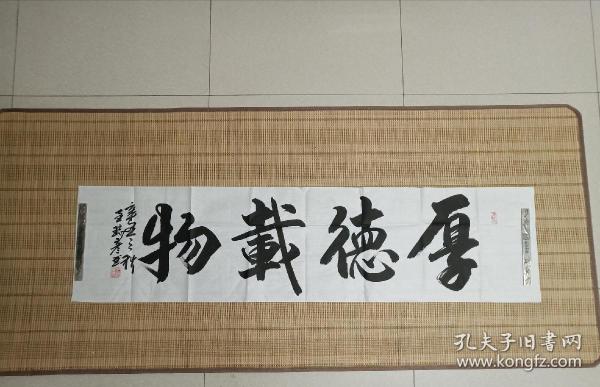 厚德載物
辛丑之秋
孔夫子旧书网
www.kongfz.com